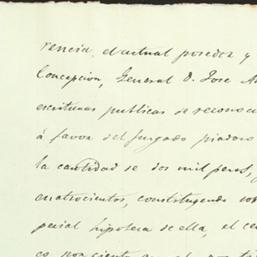 rencia, el actual poseedor y
Concepcion, General D. Jose M
escrituras publicas de reconoc
á favor del juzgado piadoso
la cantidad de dos mil pesos,
cuatrocientos, constituyendo
pecial hipoteca de ella, el
co por ciento